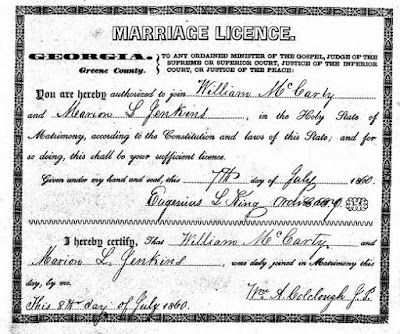 MARRIAGE LICENCE.
GEORGIA. TO ANY ORDAINED MINISTER OF THE GOSPEL, JUDGE OF THE
Greene County. SUPREME OR SUPERIOR COURT, JUSTICE OF THE INFERIOR
COURT, OR JUSTICE OF THE PEACE:
You are hereby authorized to join William McCarty
and Marion L Jenkins, in the Holy State of
Matrimony, according to the Constitution and laws of this State; and for
so doing, this shall be your sufficient licence.
Given under my hand and seal, this 7th day of July 1860.
Eugenius L King Ordinary.
I hereby certify, That William McCarty and
Marion L. Jenkins were duly joined in Matrimony this
day, by me.
This 8th day of July 1860. Wm A. Colclough J.P.